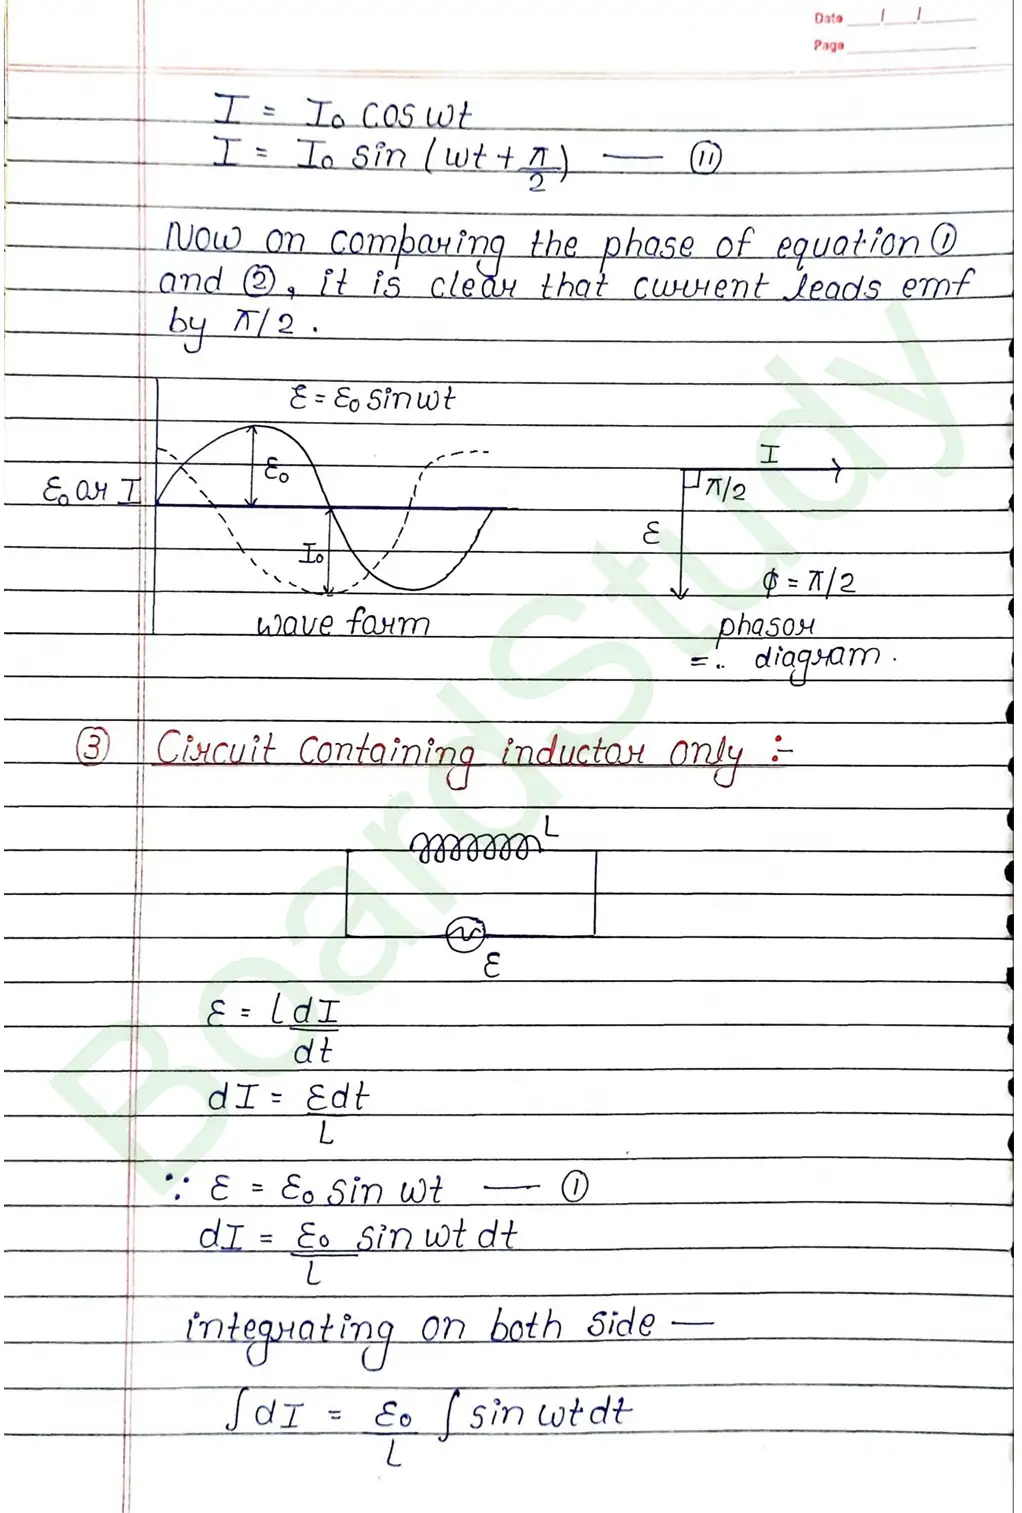 Date
Page
I = I₀ cos wt
I = I₀ sin (wt + π/2) — (11)
Now on comparing the phase of equation ①
and ②, it is clear that current leads emf
by π/2.
ε = ε₀ sin wt
ε₀
ε₀ or I
I₀
wave form
I
π/2
ε
ϕ = π/2
phasor
=.. diagram.
③ Circuit containing inductor only :-
L
ε
ε = L dI/dt
dI = εdt/L
∵ ε = ε₀ sin wt — ①
dI = ε₀/L sin wt dt
integrating on both side —
∫dI = ε₀/L ∫ sin wt dt
BoardStudy